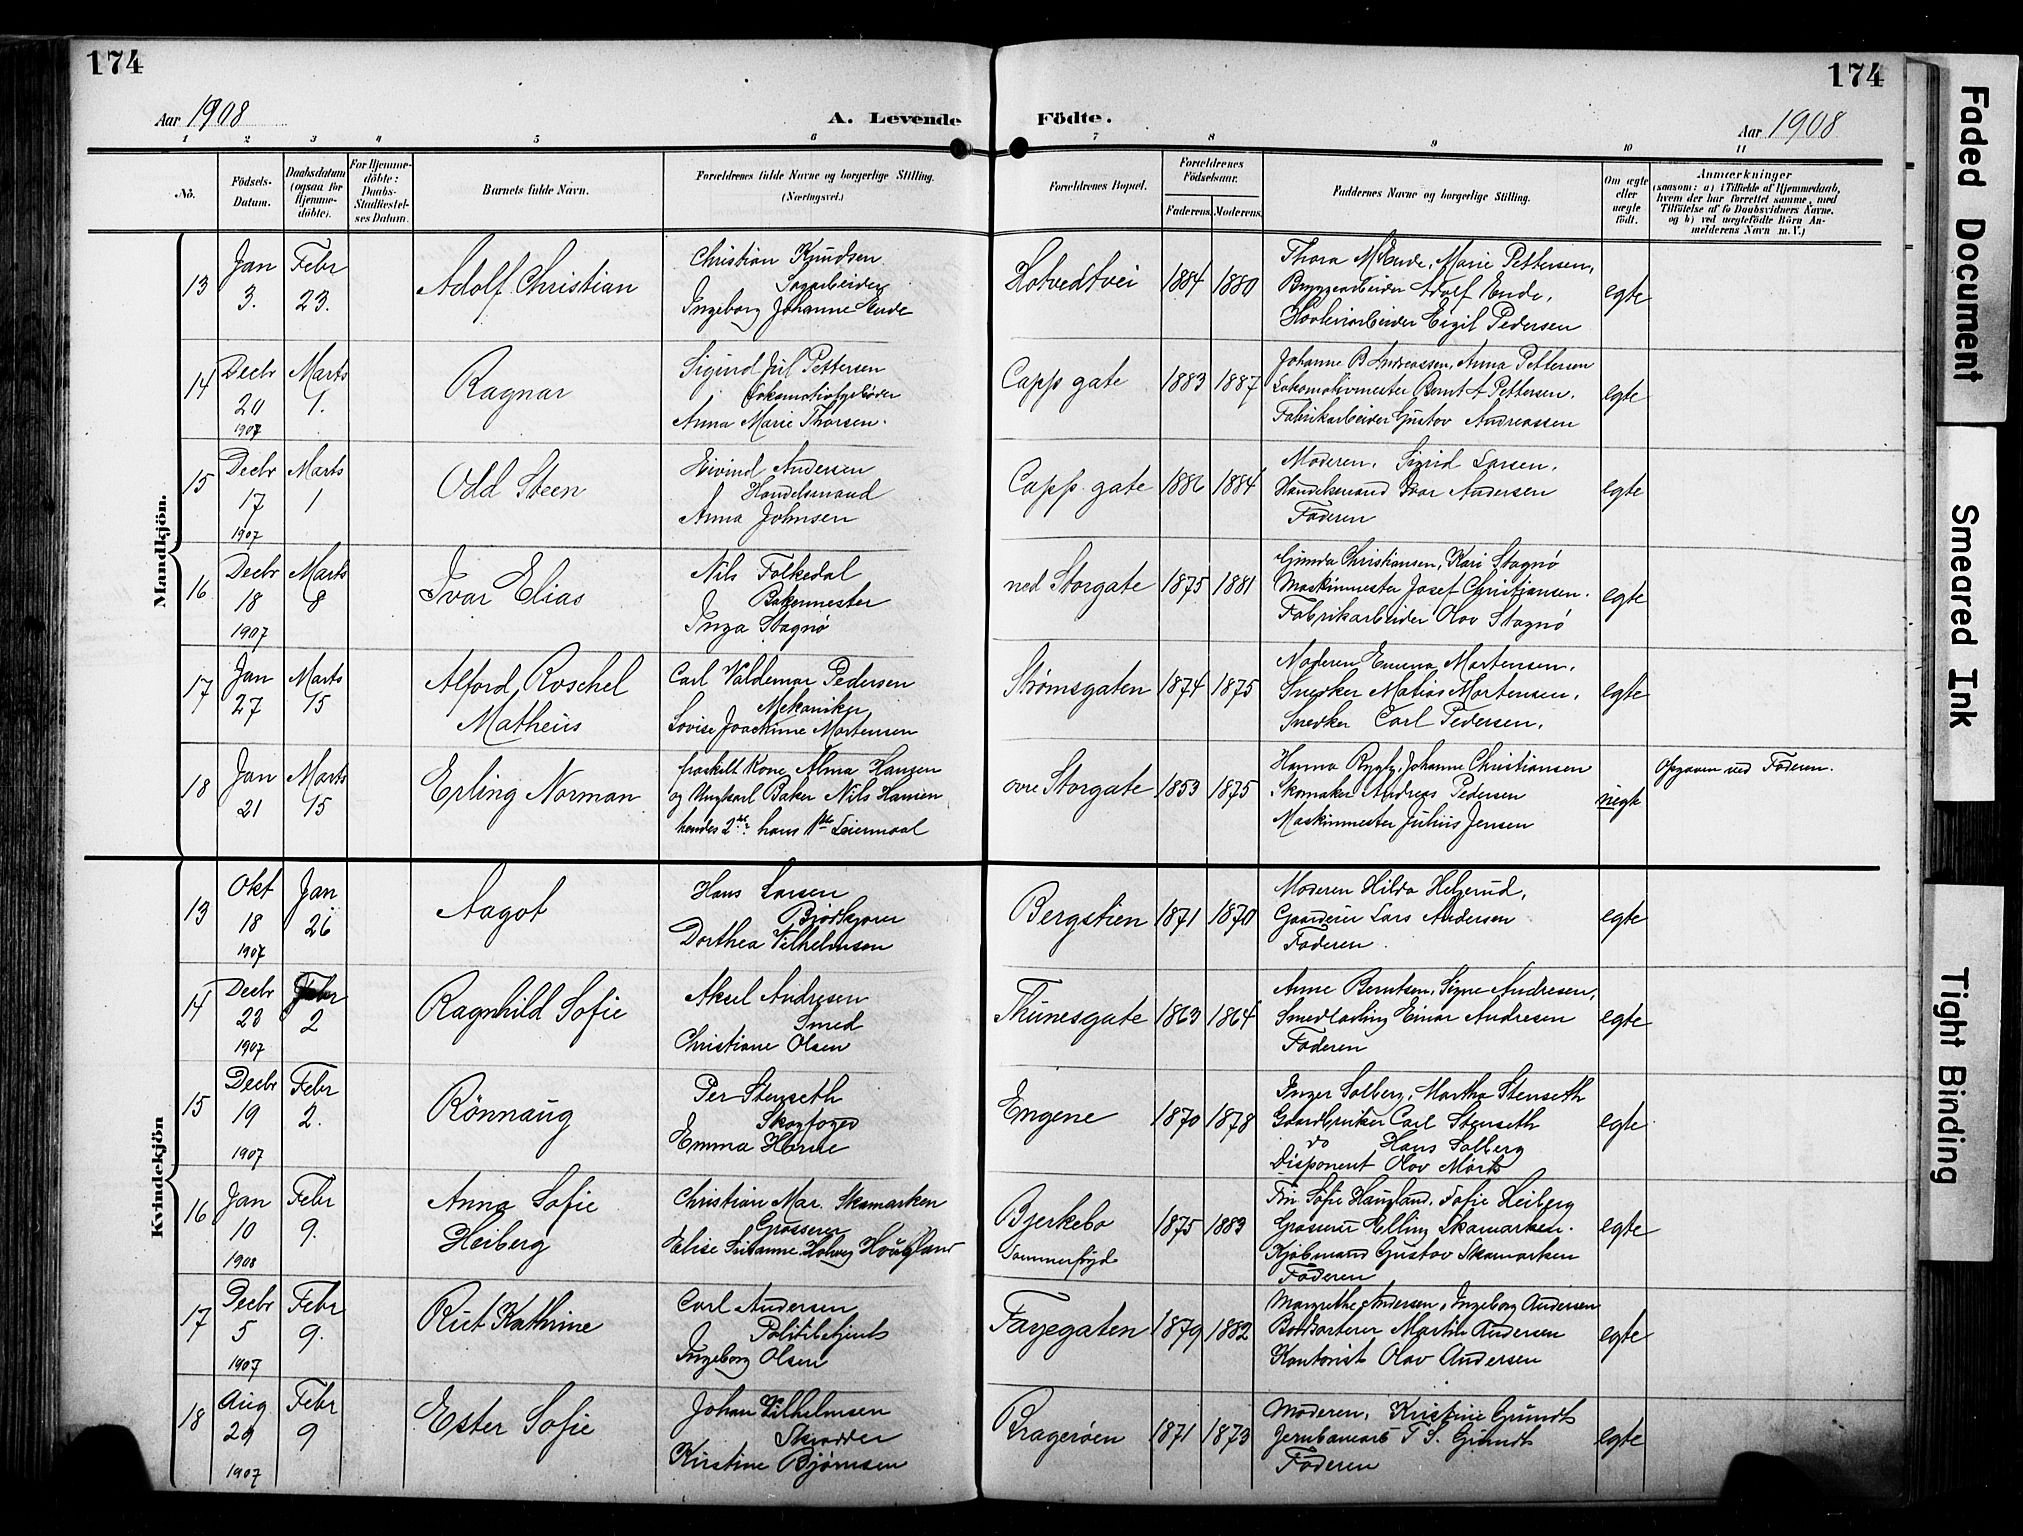 174
174
Aar 1908
A. Levende
Födte.
Aar 1908
1 2 3 4 5 6 7 8 9 10 11
No.
Födsels-
Datum.
Daabsdatum
(ogsaa for
Hjemme-
döbte).
For Hjemme-
döbte:
Daabs-
Stadfæstel-
ses Datum.
Barnets fulde Navn.
Forældrenes fulde Navne og borgerlige Stilling.
(Næringsvei.)
Forældrenes Bopæl.
Forældrenes
Födselsaar.
Faderens. Moderens.
Faddernes Navne og borgerlige Stilling.
Om ægte
eller
uægte
födt.
Anmærkninger
(saasom: a) i Tilfælde af Hjemmedaab,
hvem der har forrettet samme, med
Tilföielse af to Daabsvidners Navne.
og b) ved uægtefödte Börn An-
melderens Navn m. V.)
Mandkjön.
13
Jan
3.
Febr
23.
Adolf Christian
Christian Knudsen
Sagarbeider
Ingeborg Johanne Ende
Hotvedtvei
1884
1880
Thora M Ende, Marie Pettersen,
Bryggearbeider Adolf Ende,
Høvleriarbeider Eigil Pedersen
egte
14
Decbr
20
1907
Marts
1.
Ragnar
Sigurd Jul Pettersen
Lokomotivfyrbøder
Anna Marie Thorsen.
Capp. gate
1883
1887
Johanne B Andreassen, Anna Pettersen
Lokomotivmester Bernt A Pettersen.
Fabrikarbeider Gustav Andreassen
egte
15
Decbr
17
1907
Marts
1
Odd Steen
Eivind Andersen
Handelsmand
Anna Johnsen
Capp. gate
1886
1884
Moderen, Sigrid Larsen,
Handelsmand Ivar Andersen
Faderen
egte
16
Decbr
18
1907
Marts
8
Ivar Elias
Nils Folkedal
Bakermester
Inga Stagnø
ned Storgate
1875
1881
Gunda Christiansen, Kari Stagnø
Maskinmester Josef Christiansen.
Fabrikarbeider Olav Stagnø
egte
17
Jan
27
Marts
15
Alford Roschel
Matheus
Carl Valdemar Pedersen
Mekaniker
Lovise Joachime Mortensen
Strømsgaten
1874
1875
Moderen Emma Mortensen,
Snedker Matias Mortensen,
Snedker Carl Pedersen,
egte
18
Jan
21
Marts
15
Erling Norman
fraskilt Kone Alma Hansen
og Ungkarl Baker Nils Hansen
hendes 2det hans 1ste Leiermaal
øvre Storgate
1853
1875
Hanna Rygg, Johanne Christiansen
Skomaker Andreas Pedersen
Maskinmester Julius Jensen
uegte
Opgaven ved Faderen.
Kvindekjön
13
Okt
18
1907
Jan
26
Aagot
Hans Larsen
Dorthea Vilhelmsen
Bergstien
1871
1870
Moderen Hilda Helgerud,
Gaardeier Lars Andersen
Faderen
egte
14
Decbr
23
1907
Febr
2
Ragnhild Sofie
Aksel Andresen
Smed
Christiane Olsen
Thunesgate
1863
1864
Anne Berntsen, Signe Andresen,
Smedlærling Einar Andresen
Faderen
egte
15
Decbr
19
1907
Febr
2.
Rönnaug
Per Stenseth
Skogfoged
Emma Horne
Engene
1870
1878
Inger Solberg, Martha Stenseth
Gaardbruker Carl Stenseth
do Hans Solberg
Disponent Olav Mørk
egte
16
Jan
10
1908
Febr
9.
Anna Sofie
Heiberg
Christian Mar. Skamarken
Grosserer
Elise Susanne Holveg Haugland
Bjerkebo
Sommerfryd
1875
1883
Frk. Sofie Haugland, Sofie Heiberg
Grosserer Elling Skamarken.
Kjøbmand Gustav Skamarken
Faderen
egte
17
Decbr
5
1907
Febr
9.
Rut Kathrine
Carl Andersen
Politibetjent
Ingeborg Olsen
Fayegaten
1879
1882
Margrethe Andersen, Ingeborg Andersen
Martin Andersen
Kontorist Olav Andersen
egte
18
Aug
29
1907
Febr
9
Ester Sofie
Johan Vilhelmsen
Skrædder
Kirstine Bjørnsen
Bragerøen
1871
1873
Moderen, Kristine Grundt
T S. Grundt
Faderen
egte
Faded Document
Smeared Ink
Tight Binding